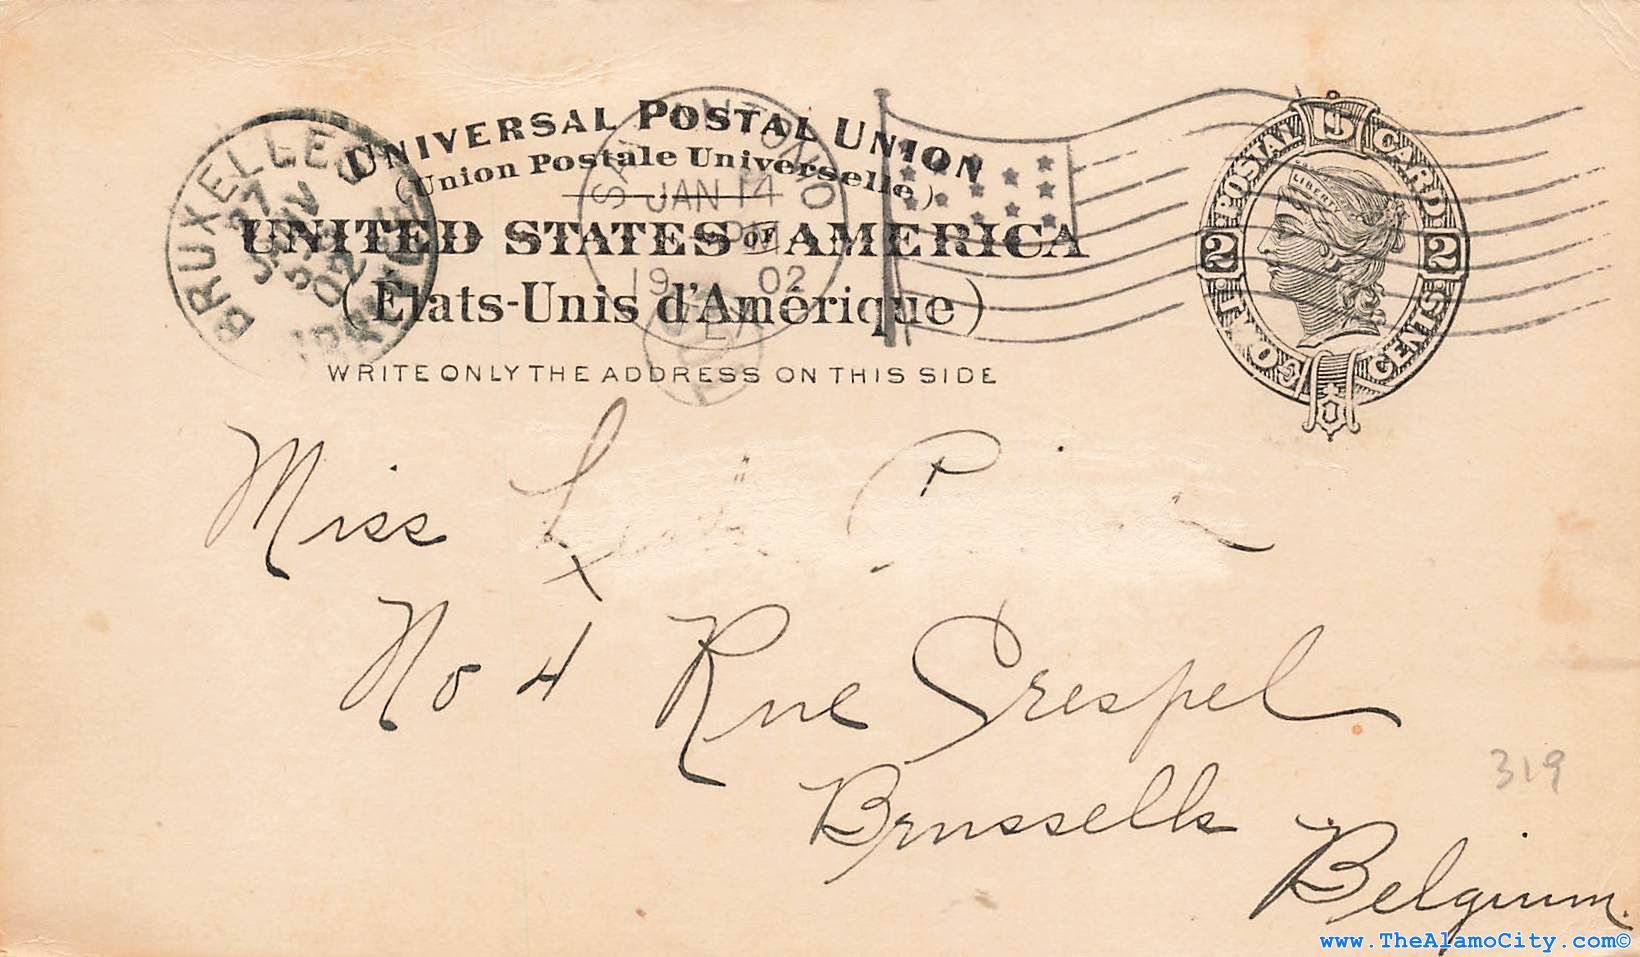 UNIVERSAL POSTAL UNION
(Union Postale Universelle)
UNITED STATES OF AMERICA
(États-Unis d'Amérique)
WRITE ONLY THE ADDRESS ON THIS SIDE
BRUXELLES
27
JANV
02
SAN ANTONIO
JAN 14
19 02
POSTAL CARD
LIBERTY
2 2
TWO CENTS
Miss
No 4 Rue Crespel
Brussells
Belgium.
319
www.TheAlamoCity.com©